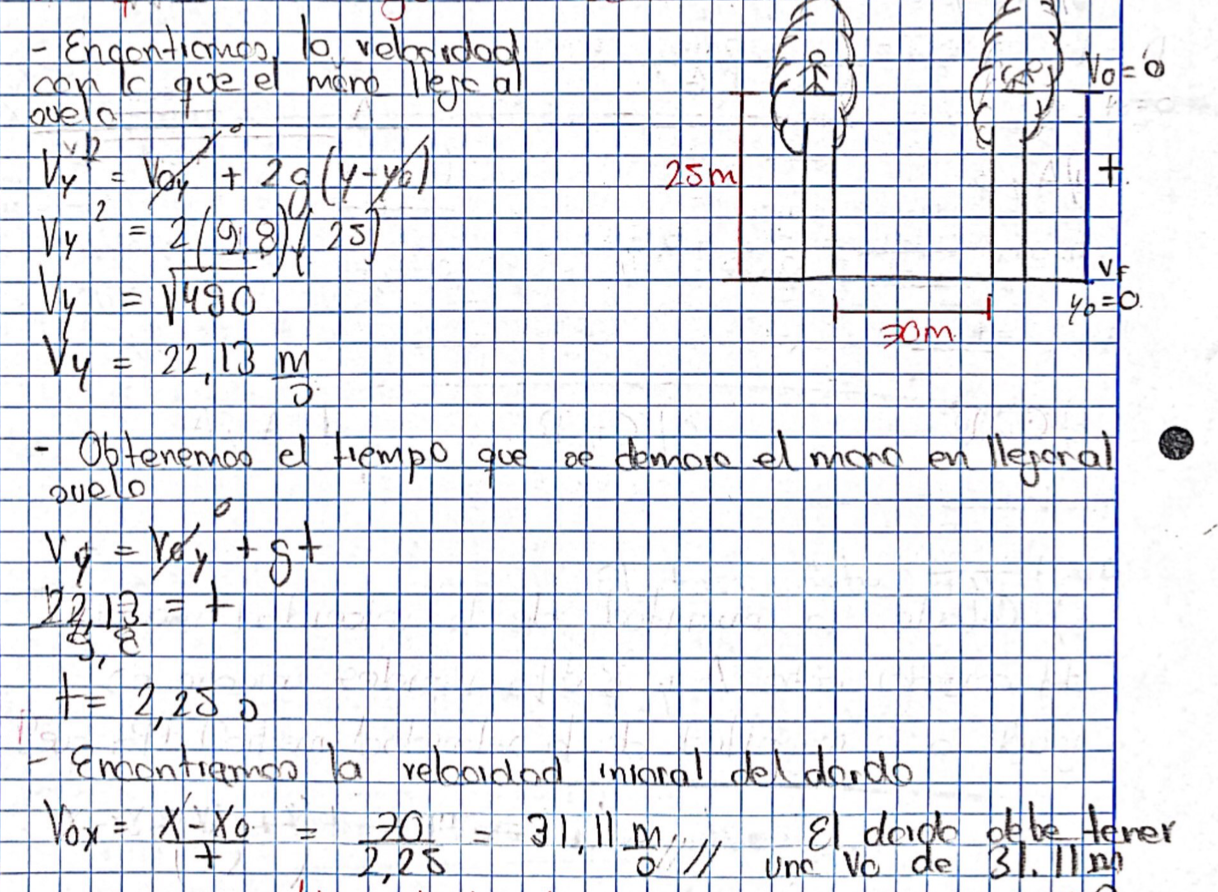 - Encontramos la velocidad
con la que el mono llega al
suelo
Vy² = Voy² 0 + 2g(y-yo)
Vy² = 2(9,8)(25)
Vy = √490
Vy = 22,13 m/s
25m
Vo=0
+
VF
yo=0
70m
- Obtenemos el tiempo que se demora el mono en llegar al
suelo
Vy = Voy 0 + gt
22,13/9,8 = t
t = 2,25 s
- Encontramos la velocidad inicial del dardo
Vox = X-Xo/t = 70/2,25 = 31,11 m/s // El dardo debe tener
una Vo de 31.11m